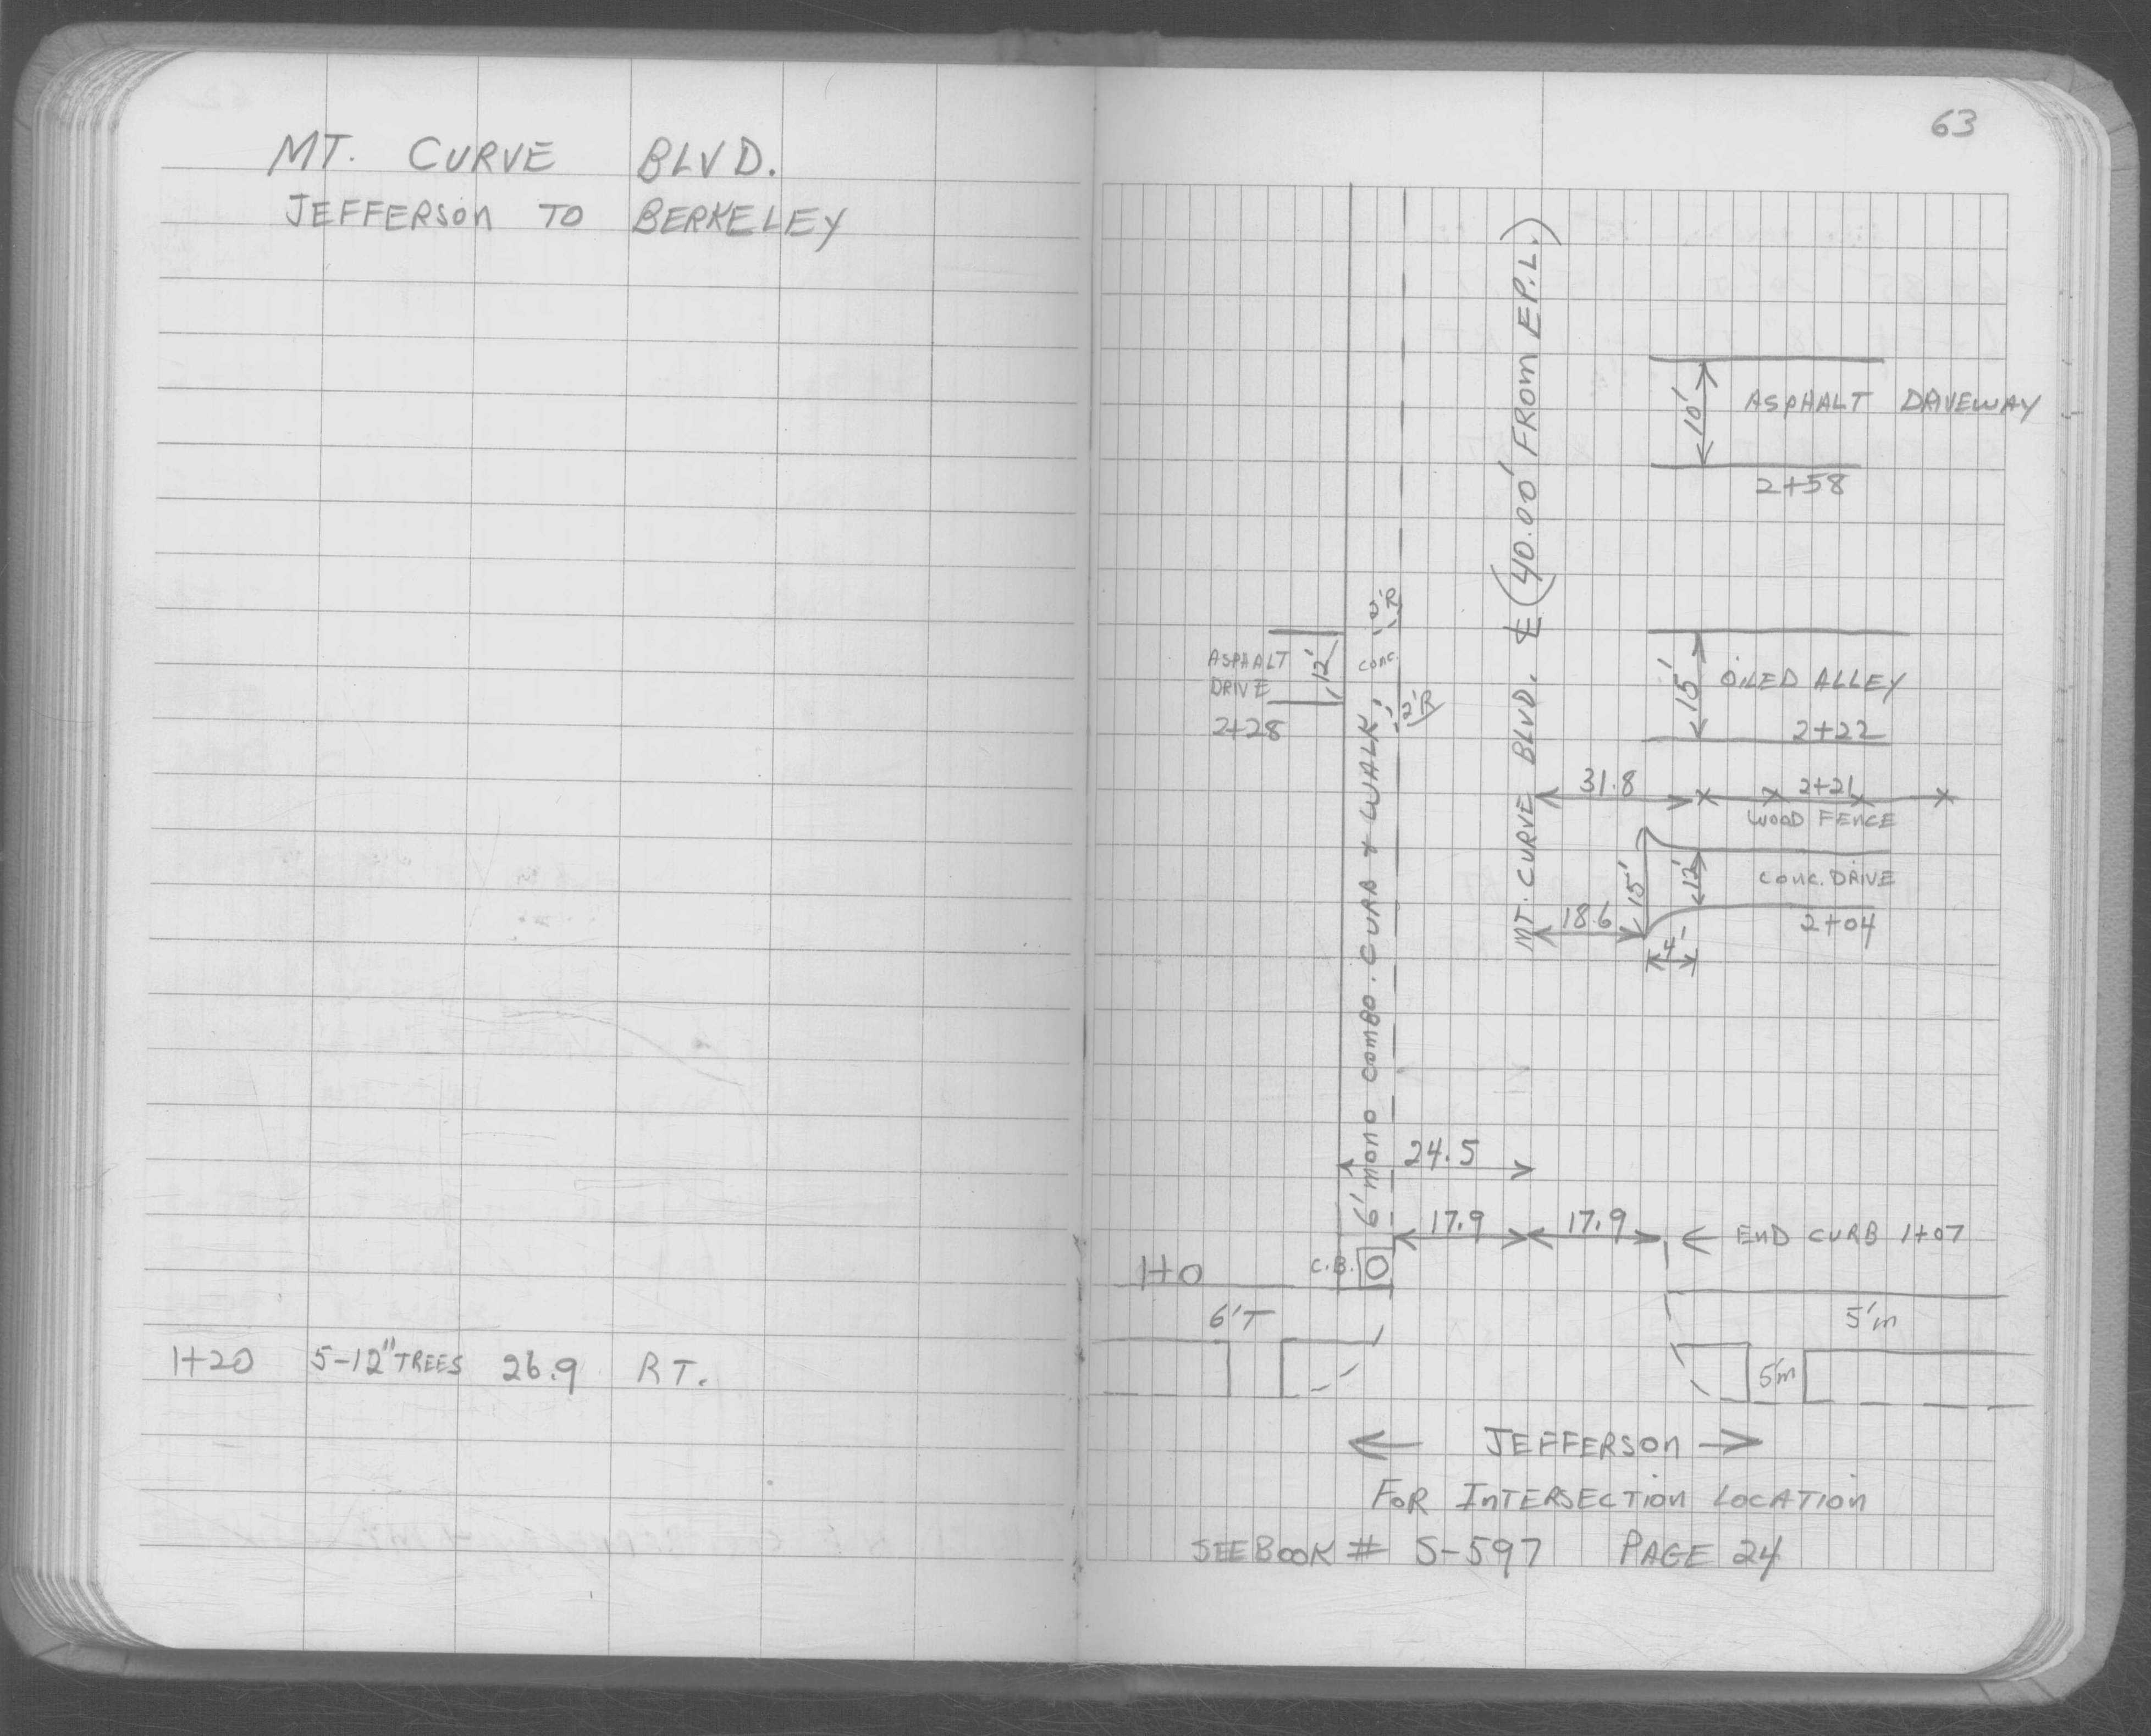 MT. CURVE BLVD.
JEFFERSON TO BERKELEY
1+20 5-12" TREES 26.9 RT.
63
MT. CURVE BLVD. ℄ (40.00' FROM E P.L.)
10'
ASPHALT DRIVEWAY
2+58
2'R
ASPHALT
DRIVE
12'
CONC.
2+28
2'R
15'
OILED ALLEY
2+22
31.8
2+21
WOOD FENCE
15'
12'
CONC. DRIVE
18.6
2+04
4'
6' MONO COMBO. CURB & WALK
24.5
17.9
17.9
← END CURB 1+07
1+0
C.B.
6'T
5'm
5'm
← JEFFERSON →
FOR INTERSECTION LOCATION
SEE BOOK # S-597 PAGE 24